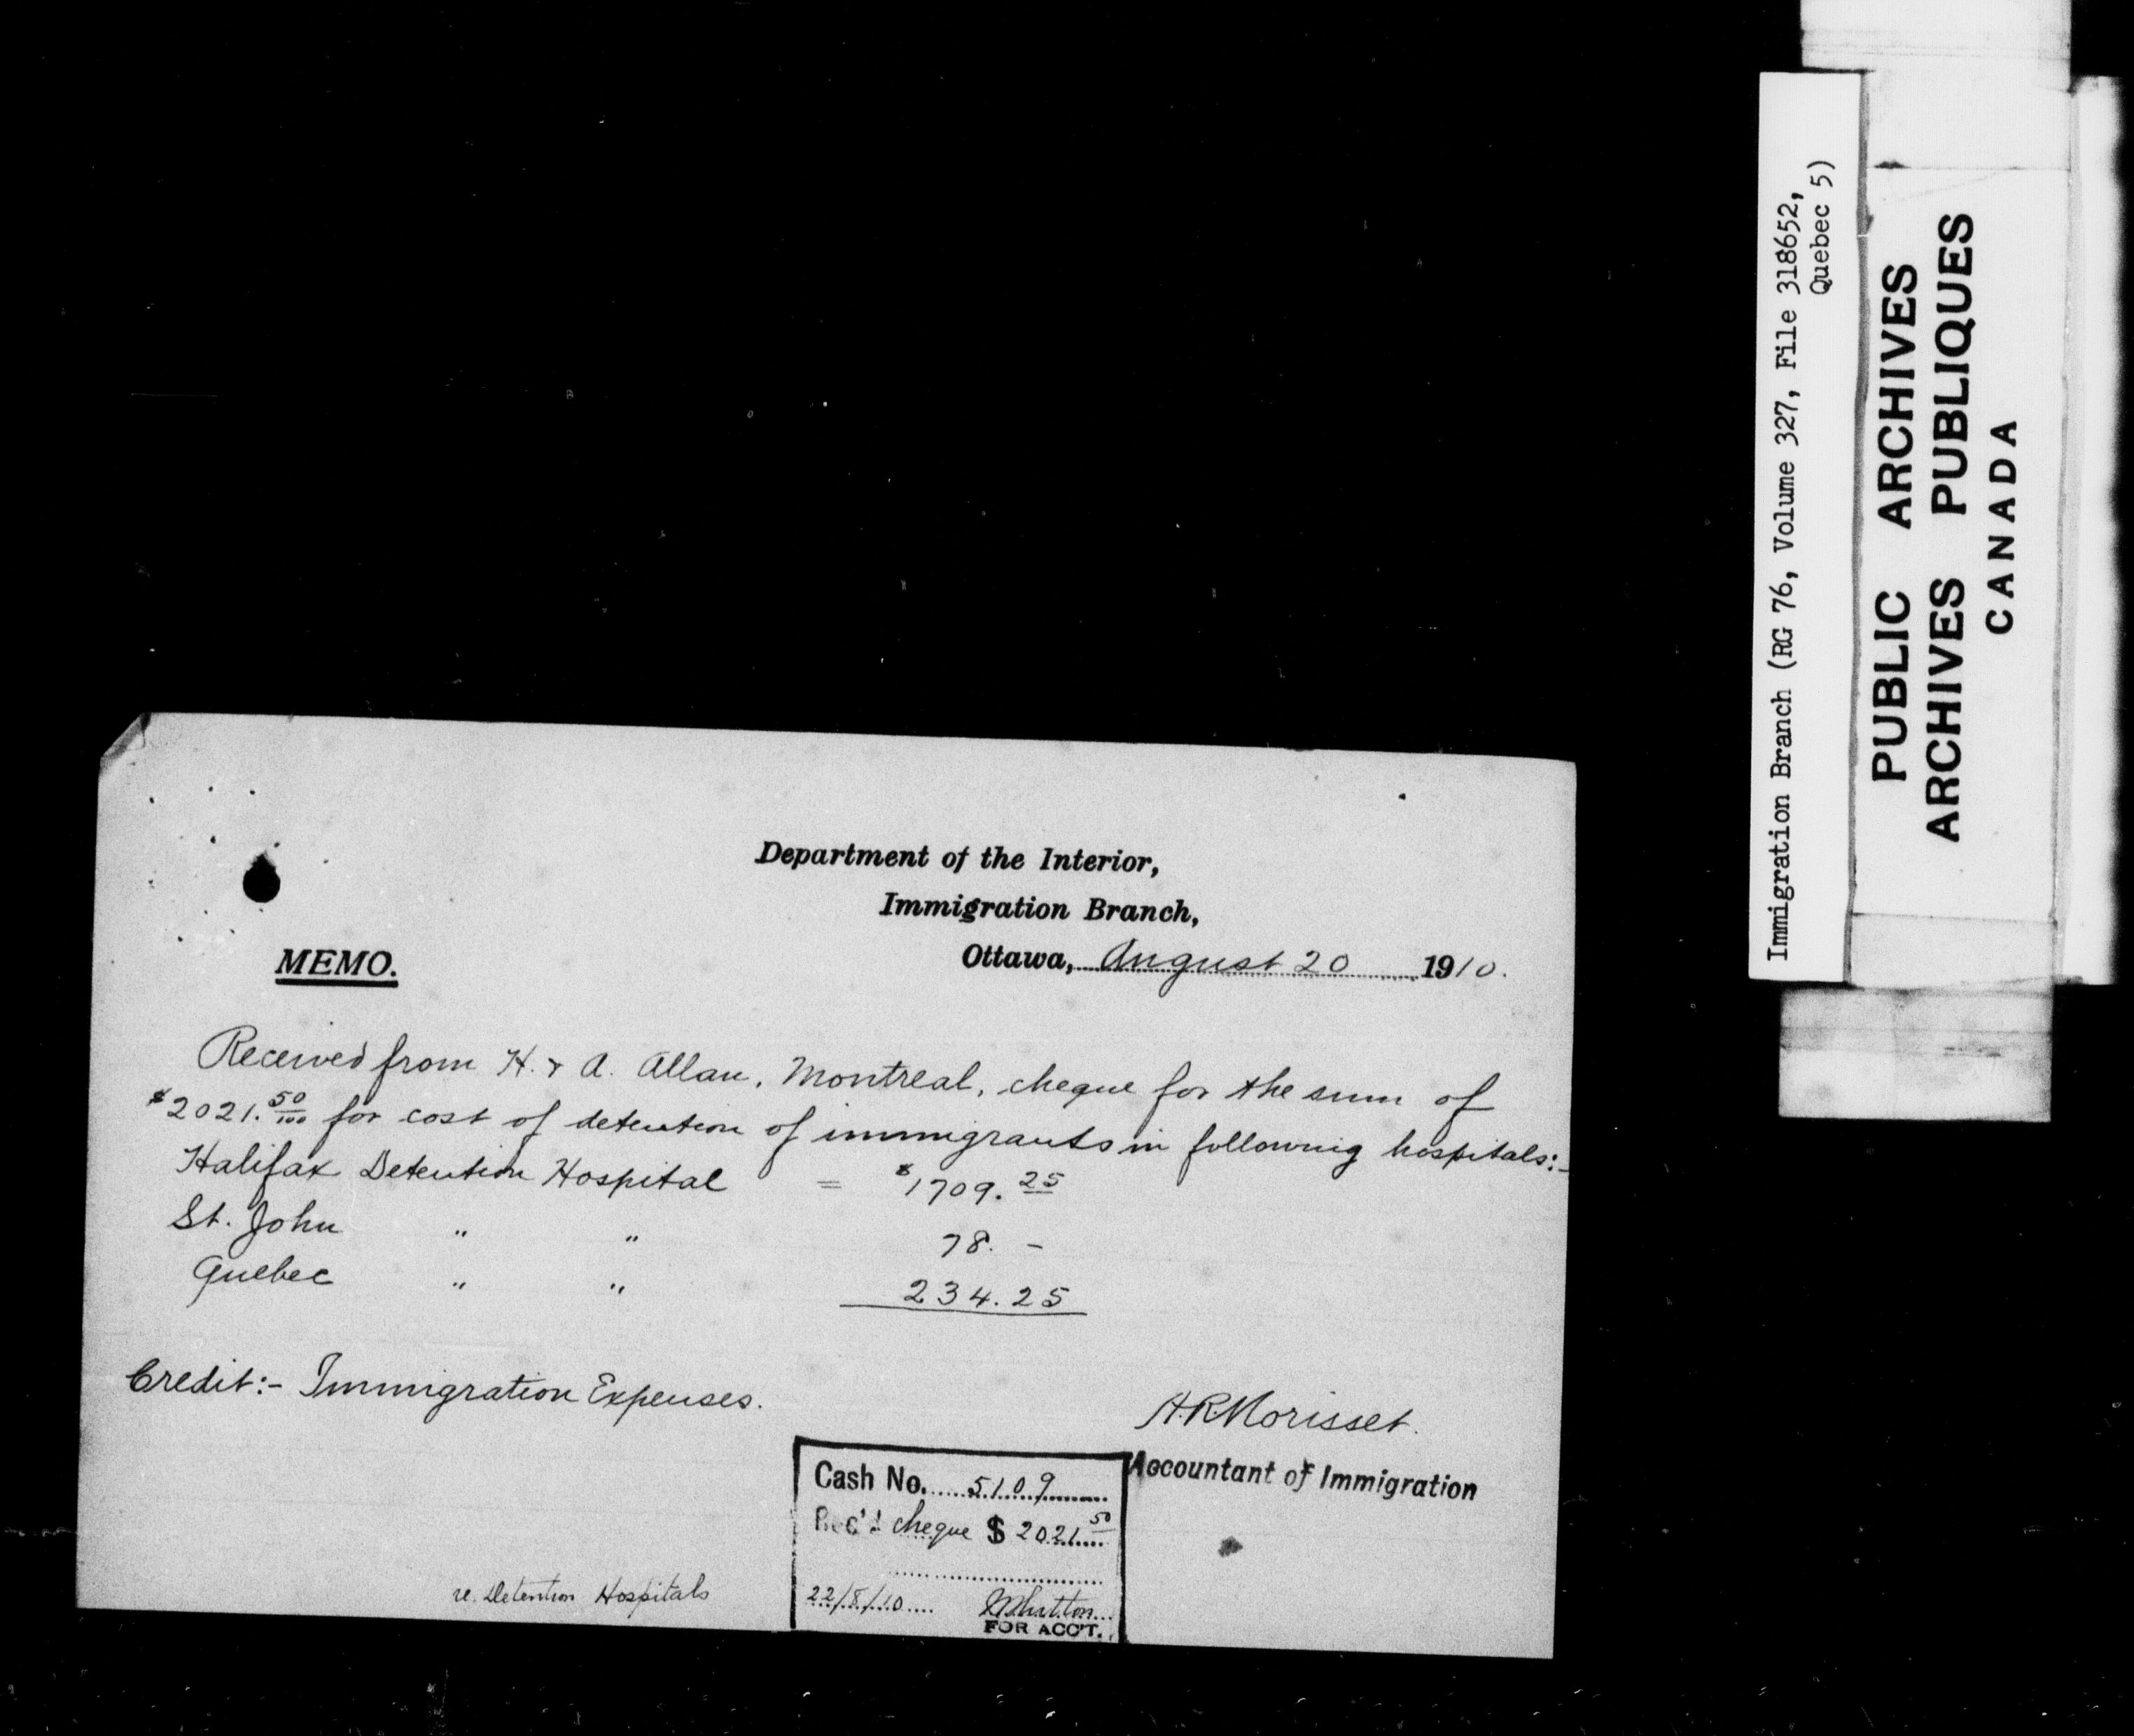 Department of the Interior,
Immigration Branch,
Ottawa, August 20 1910.
MEMO.
Received from H. & A. Allan, Montreal, cheque for the sum of
$2021.50/100 for cost of detention of immigrants in following hospitals:-
Halifax Detention Hospital = $1709.25
St. John " " 78. -
Quebec " " 234.25
Credit:- Immigration Expenses.
A.R. Morisset.
Accountant of Immigration
Cash No. 5109
Rec'd cheque $2021.50
22/8/10
FOR ACC'T.
re. Detention Hospitals
Immigration Branch (RG 76, Volume 327, File 318652,
Quebec 5)
PUBLIC ARCHIVES
ARCHIVES PUBLIQUES
CANADA